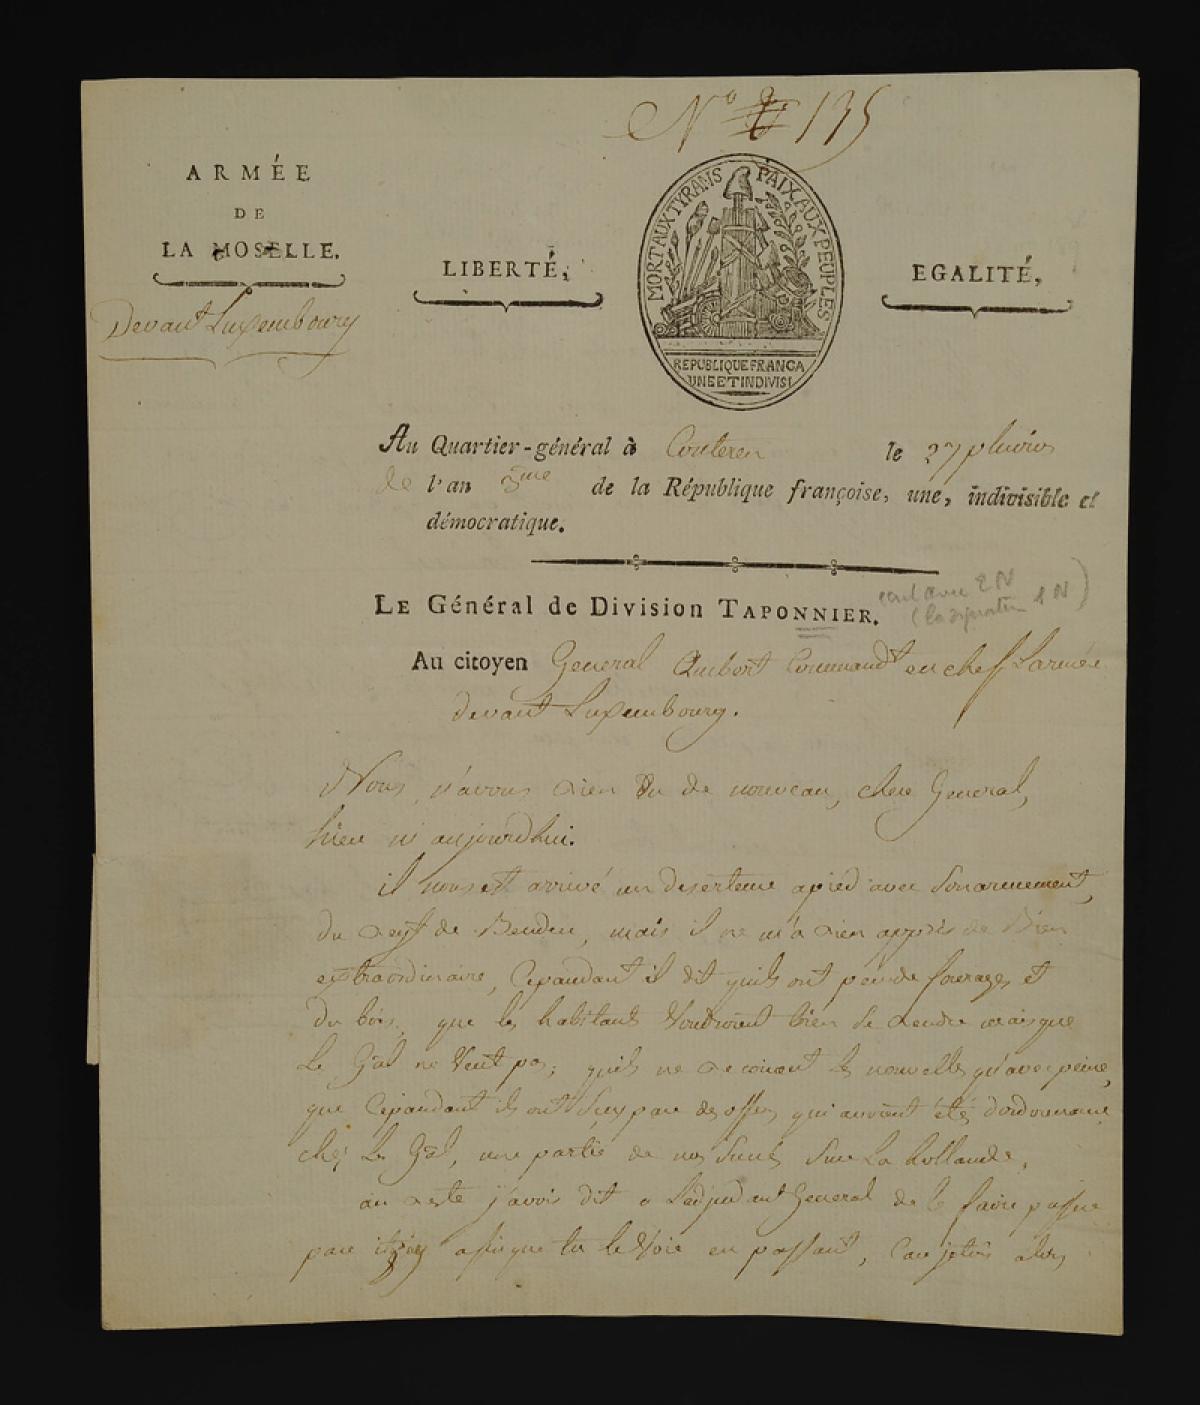 N° 135
ARMÉE
DE
LA MOSELLE.
Devant Luxembourg
LIBERTÉ,
MORT AUX TYRANS PAIX AUX PEUPLES
REPUBLIQUE FRANCA
UNE ET INDIVISI
EGALITÉ,
Au Quartier-général à Conteren le 27 pluvios
de l'an 3me de la République françoise, une, indivisible et
démocratique.
LE Général de Division TAPONNIER.
avec 2 N
(la 1 N)
Au citoyen General Ambert Commandt en chef L'armée
devant Luxembourg.
Nous n'avons rien eu de nouveau, cher General,
hier ni aujourdhui.
il nous est arrivé un deserteur apied avec Son armement,
du regt de Bender, mais il ne m'a rien appris de Bien
extraordinaire, Cepandant il dit quils ont peu de fourages et
du bois, que les habitants Voudroient bien Se rendre mais que
Le Gal ne Veut pas; quils ne recoivent les nouvelles qu'avec peine,
que Cepandant ils ont Sçu par des offers qui avoient étés dordonnance
chez Le Gal, une partie de nos Succés Sur La hollande,
au reste j'avois dit a Ladjudant General de le faire passer
par afin que tu le Voie en passant, Car jetois alors